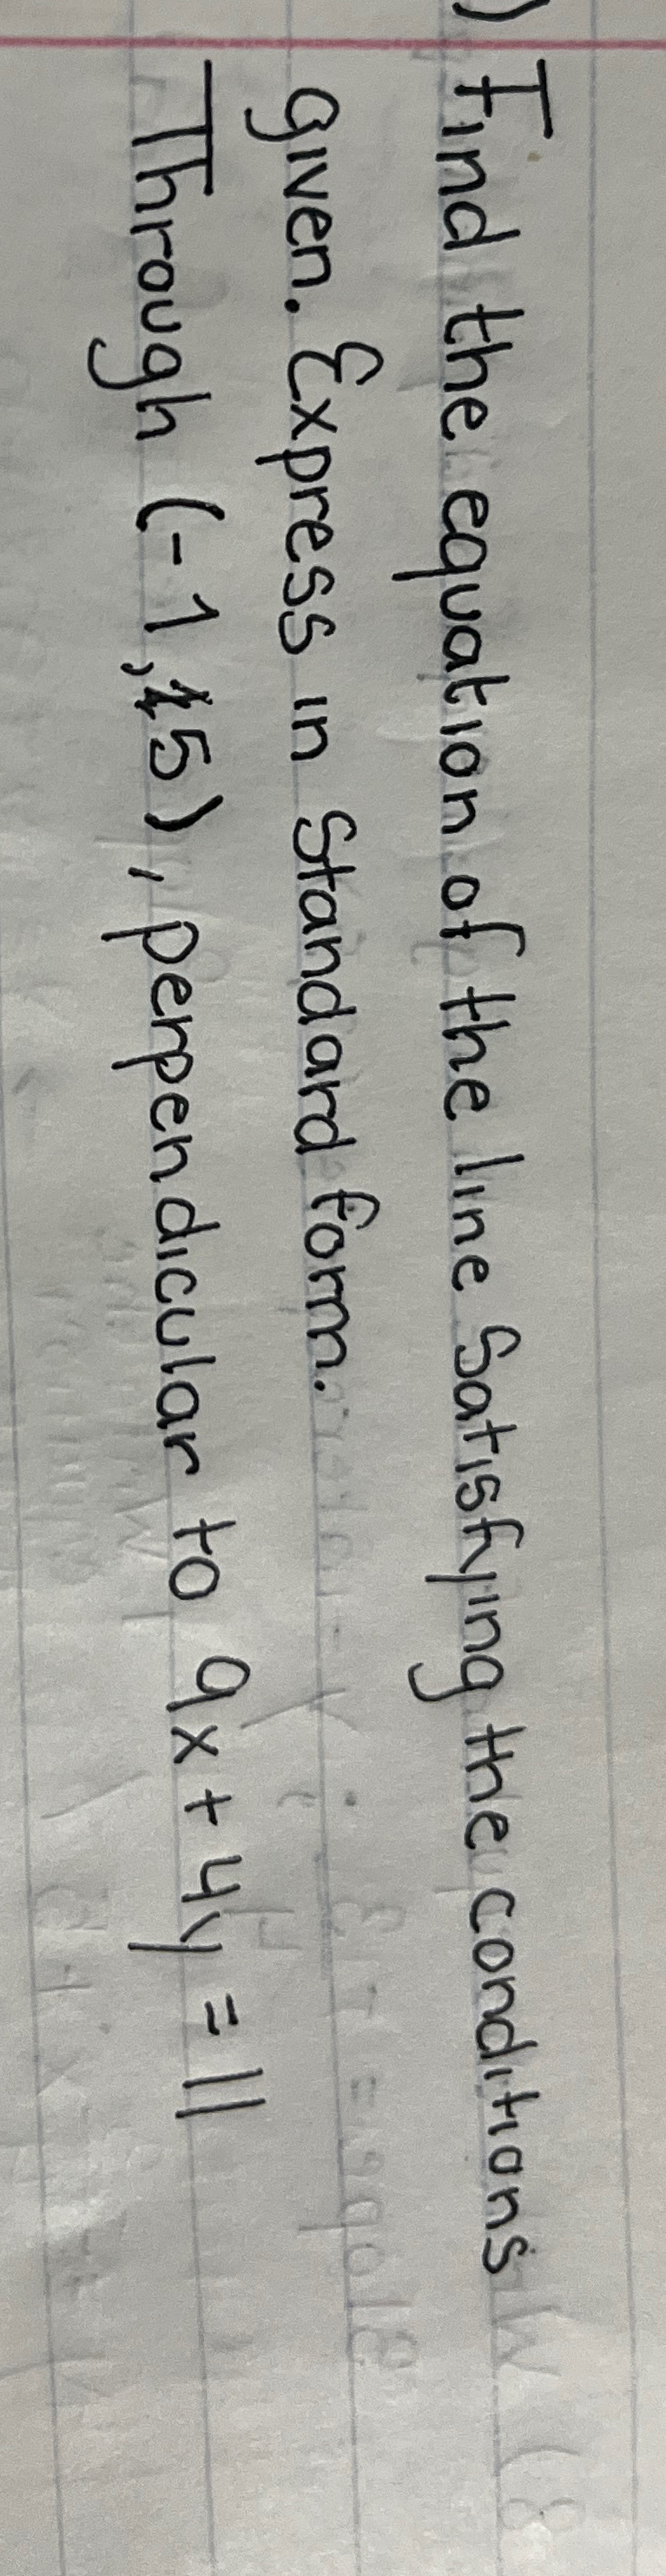 ) Find the equation of the line satisfying the conditions
given. Express in standard form.
Through (-1, 5), perpendicular to 9x + 4y = 11